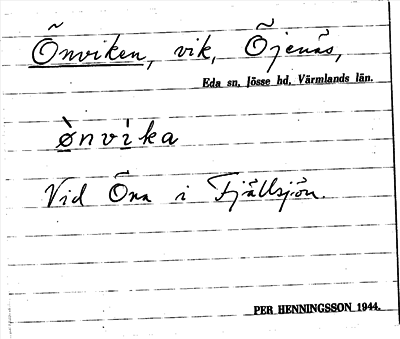 Önviken, vik, Öjenäs,
Eda sn, Jösse hd, Värmlands län.
ø̀nvika
Vid Önn i Fjällsjön.
PER HENNINGSSON 1944.